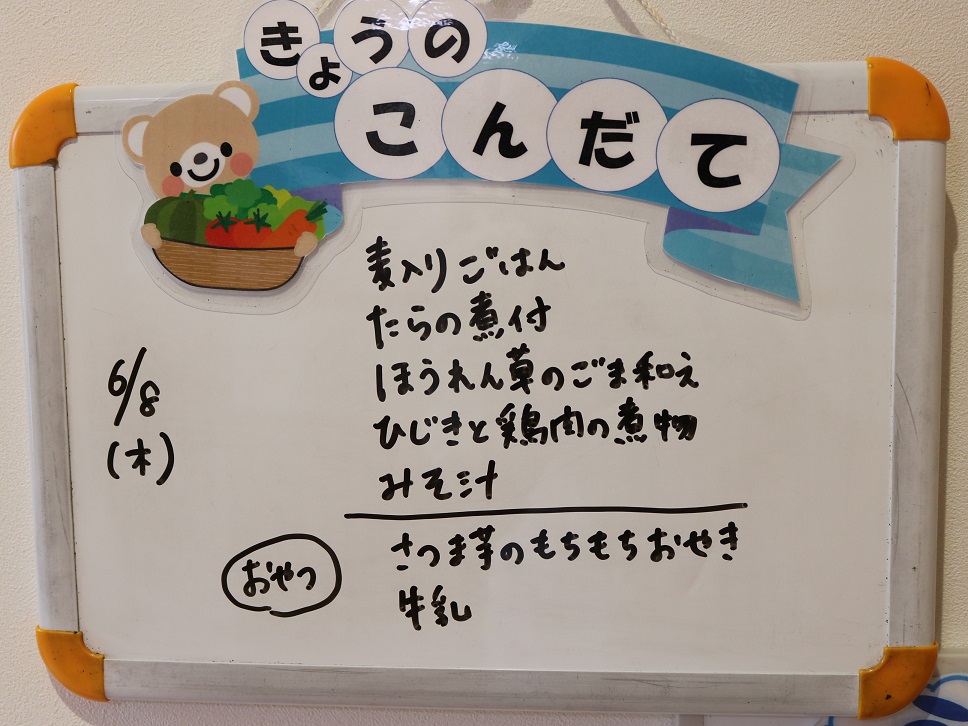 きょうの
こんだて
麦入りごはん
たらの煮付
ほうれん草のごま和え
ひじきと鶏肉の煮物
みそ汁
6/8
(木)
おやつ
さつま芋のもちもちおやき
牛乳